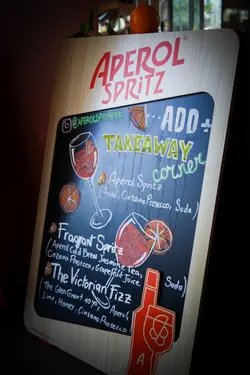 APEROL®
SPRITZ
@APEROLSPRITZHK
ADD+
TAKEAWAY
corner
Aperol Spritz
(Aperol, Cinzano Prosecco, Soda)
Fragrant Spritz
(Aperol Cold Brew Jasmine Tea,
Cinzano Prosecco, Grapefruit Juice, Soda)
The Victorian Fizz
(The Glen Grant 10yo, Aperol,
Lime, Honey, Cinzano Prosecco)
A